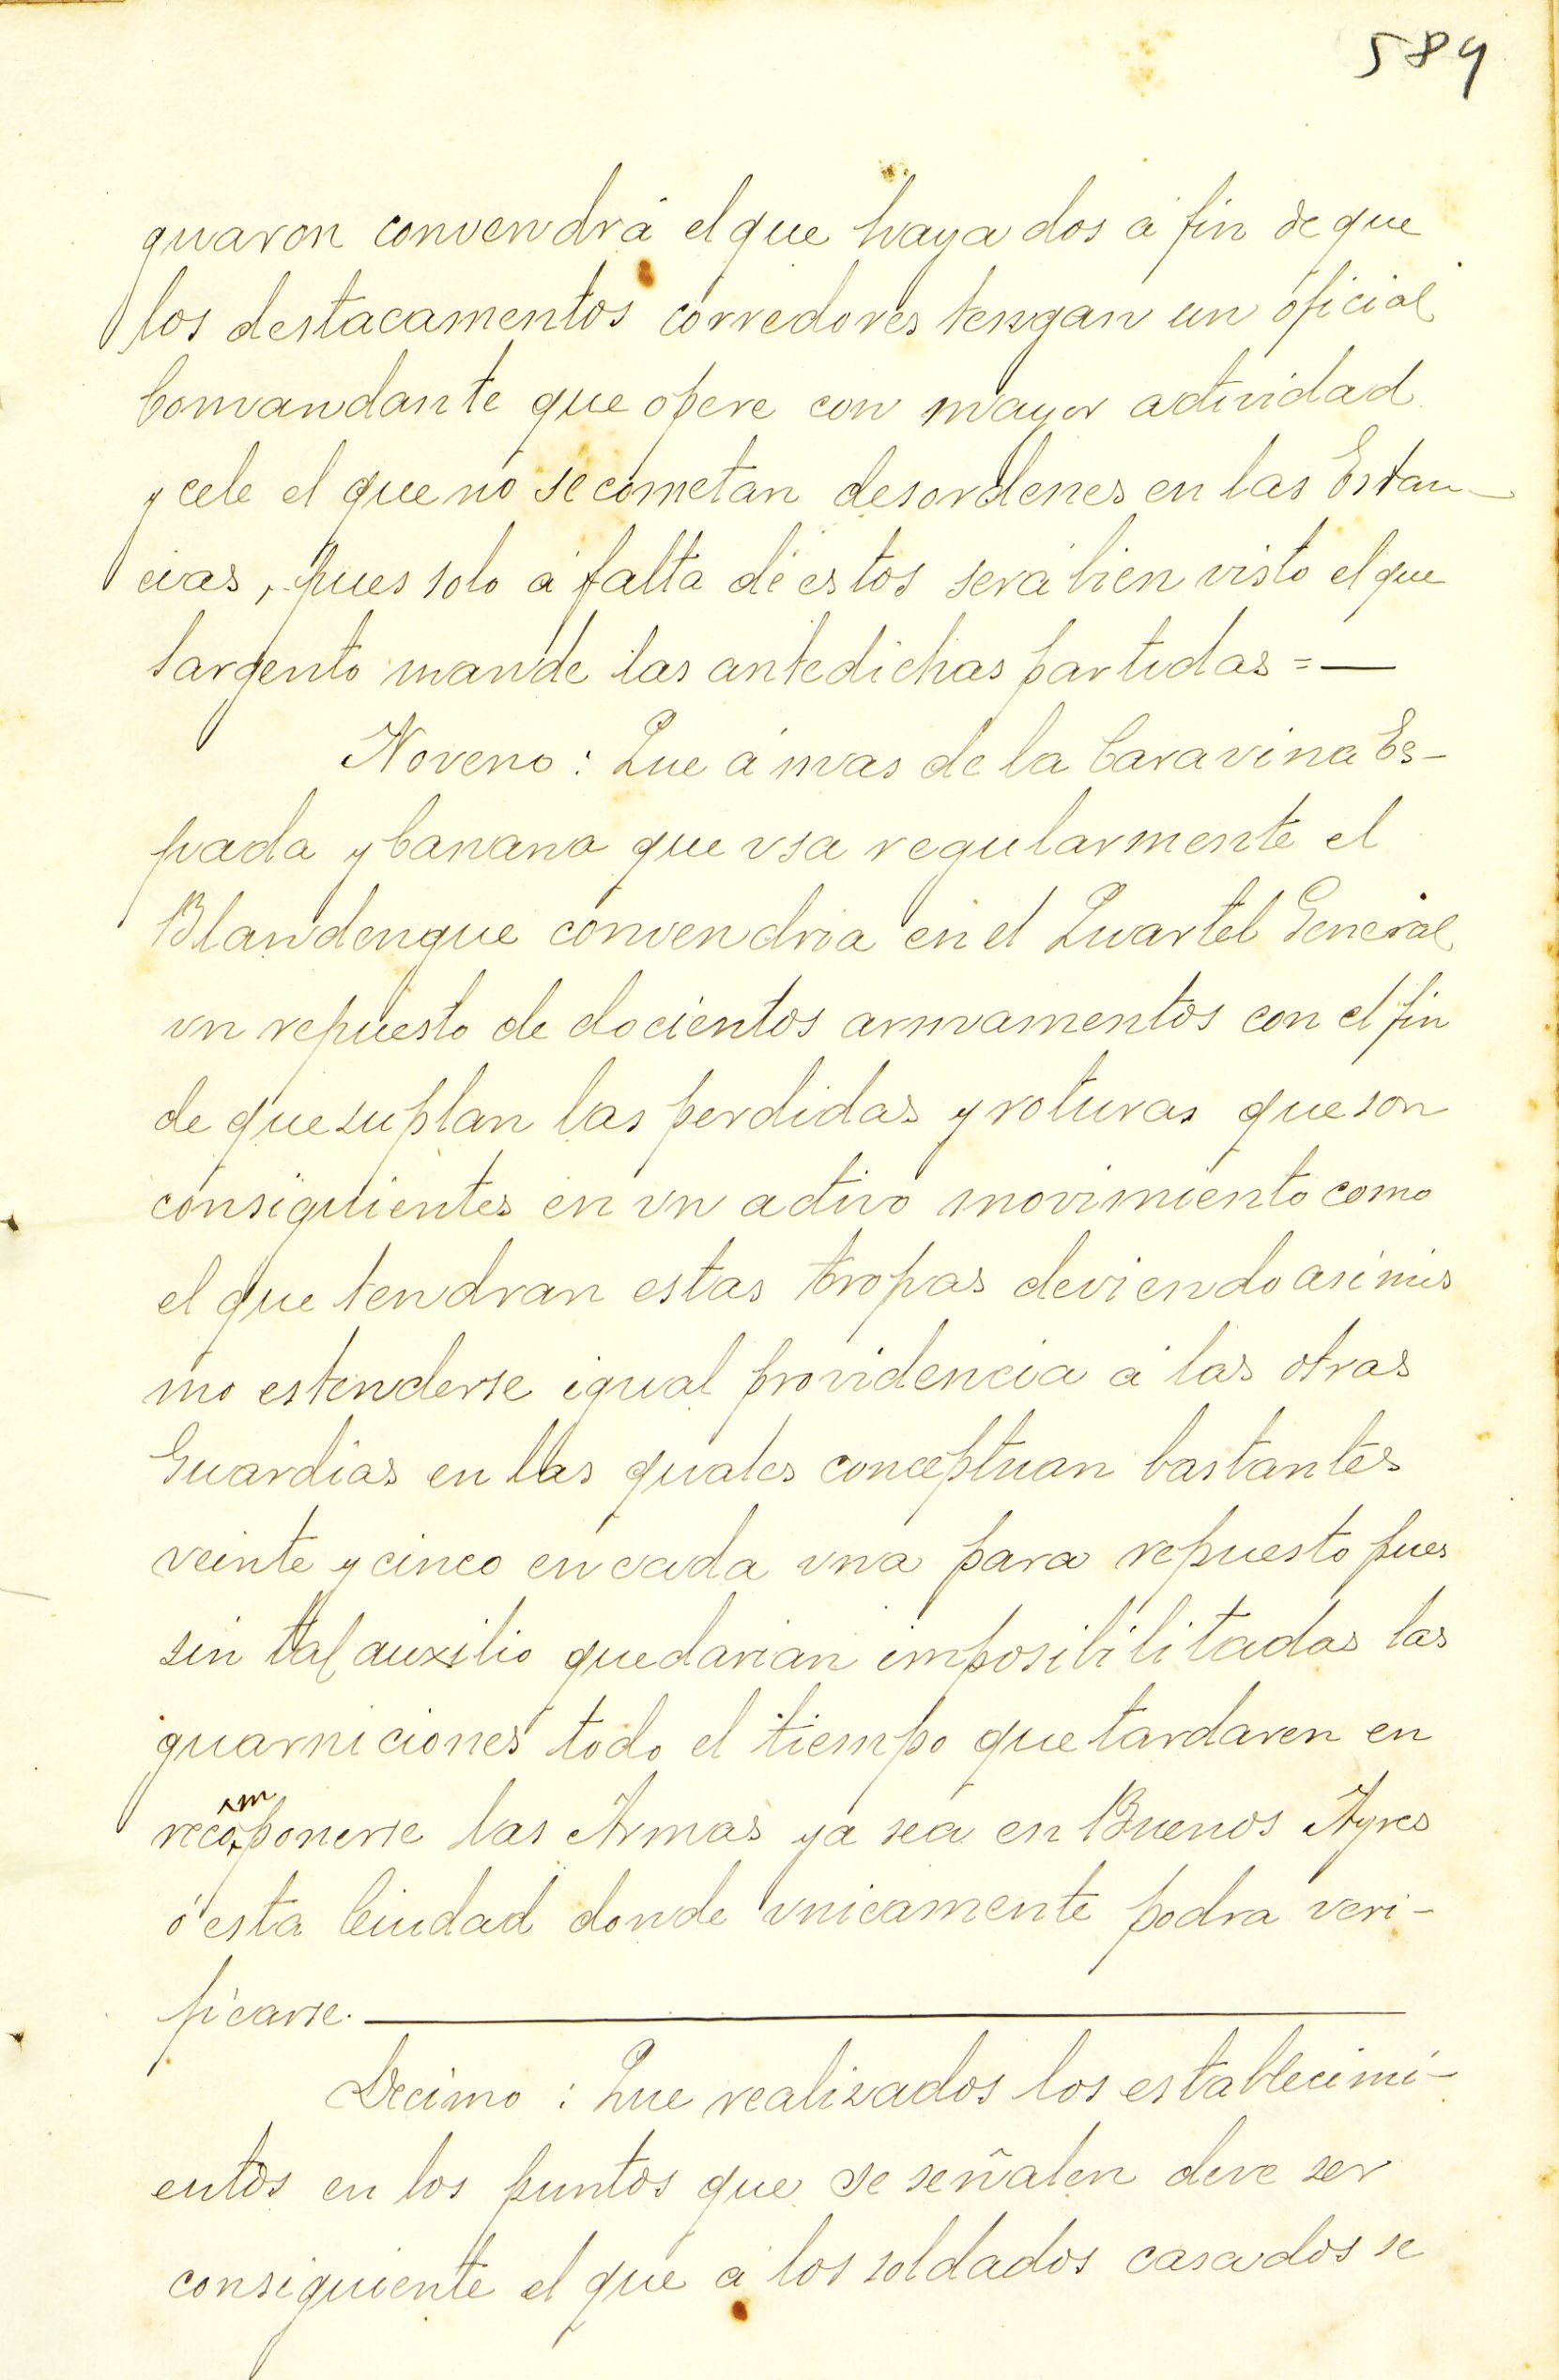 589
guaron convendrá el que haya dos á fin de que
los destacamentos corredores tengan un oficial
Comandante que opere con mayor actividad
y cele el que no se cometan desordenes en las Estan-
cias, pues solo á falta de estos será bien visto el que
Sargento mande las antedichas partidas =—
Noveno: Que á mas de la Caravina Es-
pada y Canana que vsa regularmente el
Blandengue convendria en el Quartel General
vn repuesto de docientos armamentos con el fin
de que suplan las perdidas y roturas que son
consiguientes en vn activo movimiento como
el que tendran estas tropas deviendo asimis
mo estenderse igual providencia á las otras
Guardias en las quales conceptuan bastantes
veinte y cinco en cada vna para repuesto pues
sin tal auxilio quedarian imposibilitadas las
guarniciones todo el tiempo que tardaren en
recomponerse las Armas ya sea en Buenos Ayres
ó esta Ciudad donde vnicamente podra veri-
ficarse.—
Decimo: Que realizados los establecimi-
entos en los puntos que se señalen deve ser
consiguiente el que á los soldados casados se